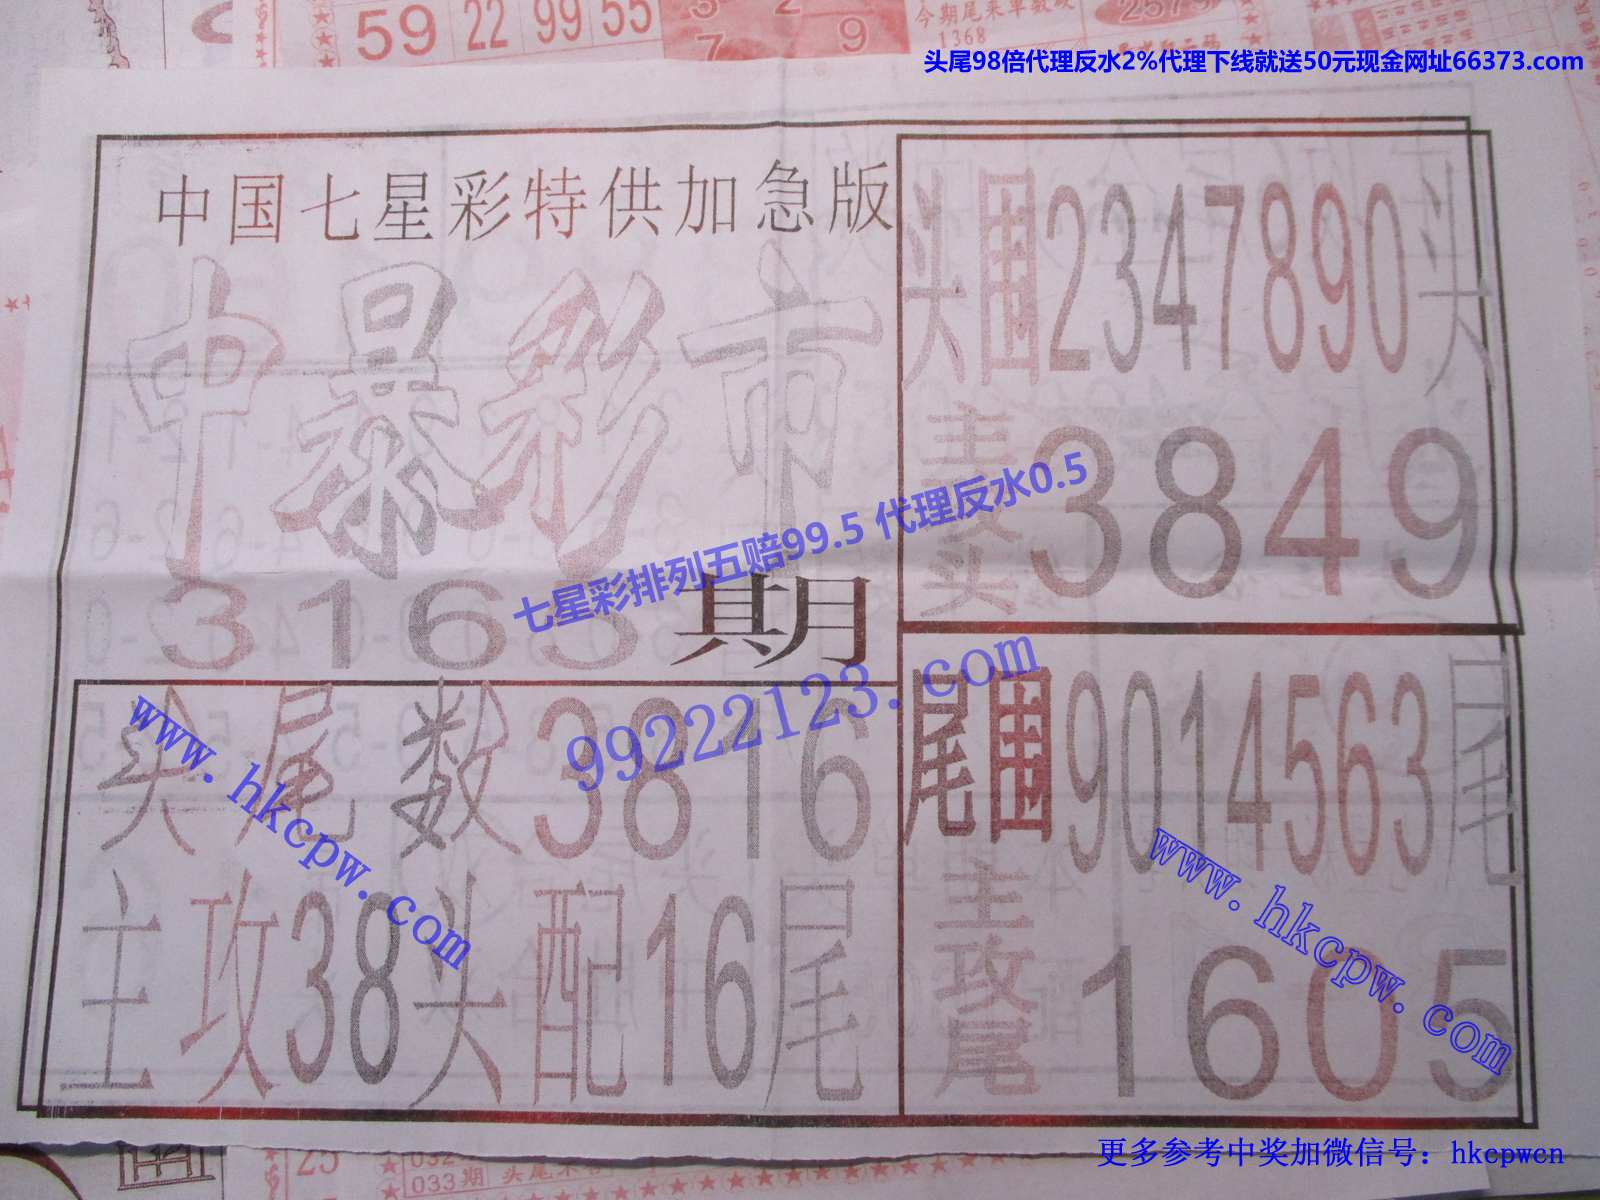 59 22 99 55
3 2
7 9
今期尾来单数攻
1368
2575
头尾98倍代理反水2%代理下线就送50元现金网址66373.com
中国七星彩特供加急版
中暴彩市
3165期
七星彩排列五赔99.5 代理反水0.5
99222123.com
头尾数3816
主攻38头配16尾
头围2347890头
主攻头3849
尾围9014563尾
主攻尾1605
www.hkcpw.com
www.hkcpw.com
更多参考中奖加微信号：hkcpwcn
25
032
033期